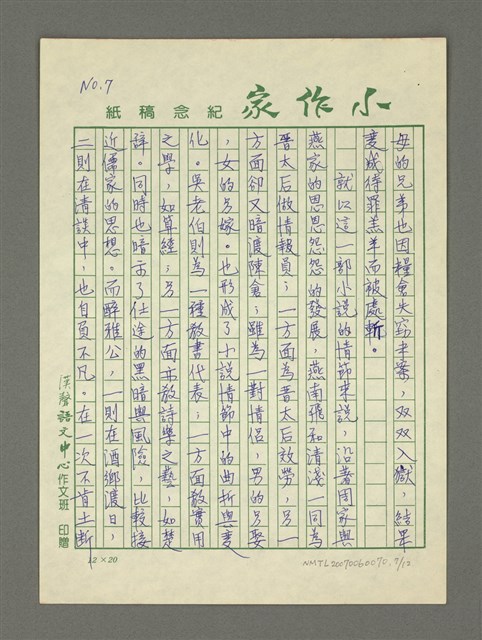 NO.7
小作家
紀念稿紙
母的兄弟也因糧倉失竊末葉，双双入獄，結果
變成待罪羔羊而被處斬。
就以這一部小說的情節來說，沿著周家與
燕家的恩恩怨怨的發展，燕南飛和清淺一同為
晋太后做情報員；一方面為晋太后效勞，另一
方面卻又暗渡陳倉；雖為一對情侶，男的另娶
，女的另嫁。也形成了小說情節中的曲折與變
化。吳老伯則為一種教書代表；一方面教實用
之學，如算經；另一方面亦教詩學之藝，如楚
辭。同時也暗示了仕途的黑暗與風險，比較接
近儒家的思想。而醉雅公，一則在酒鄉渡日，
二則在清談中，也自負不凡。在一次不肯土斷
漢聲語文中心作文班 印贈
12×20
NMTL20070060070. 7/12